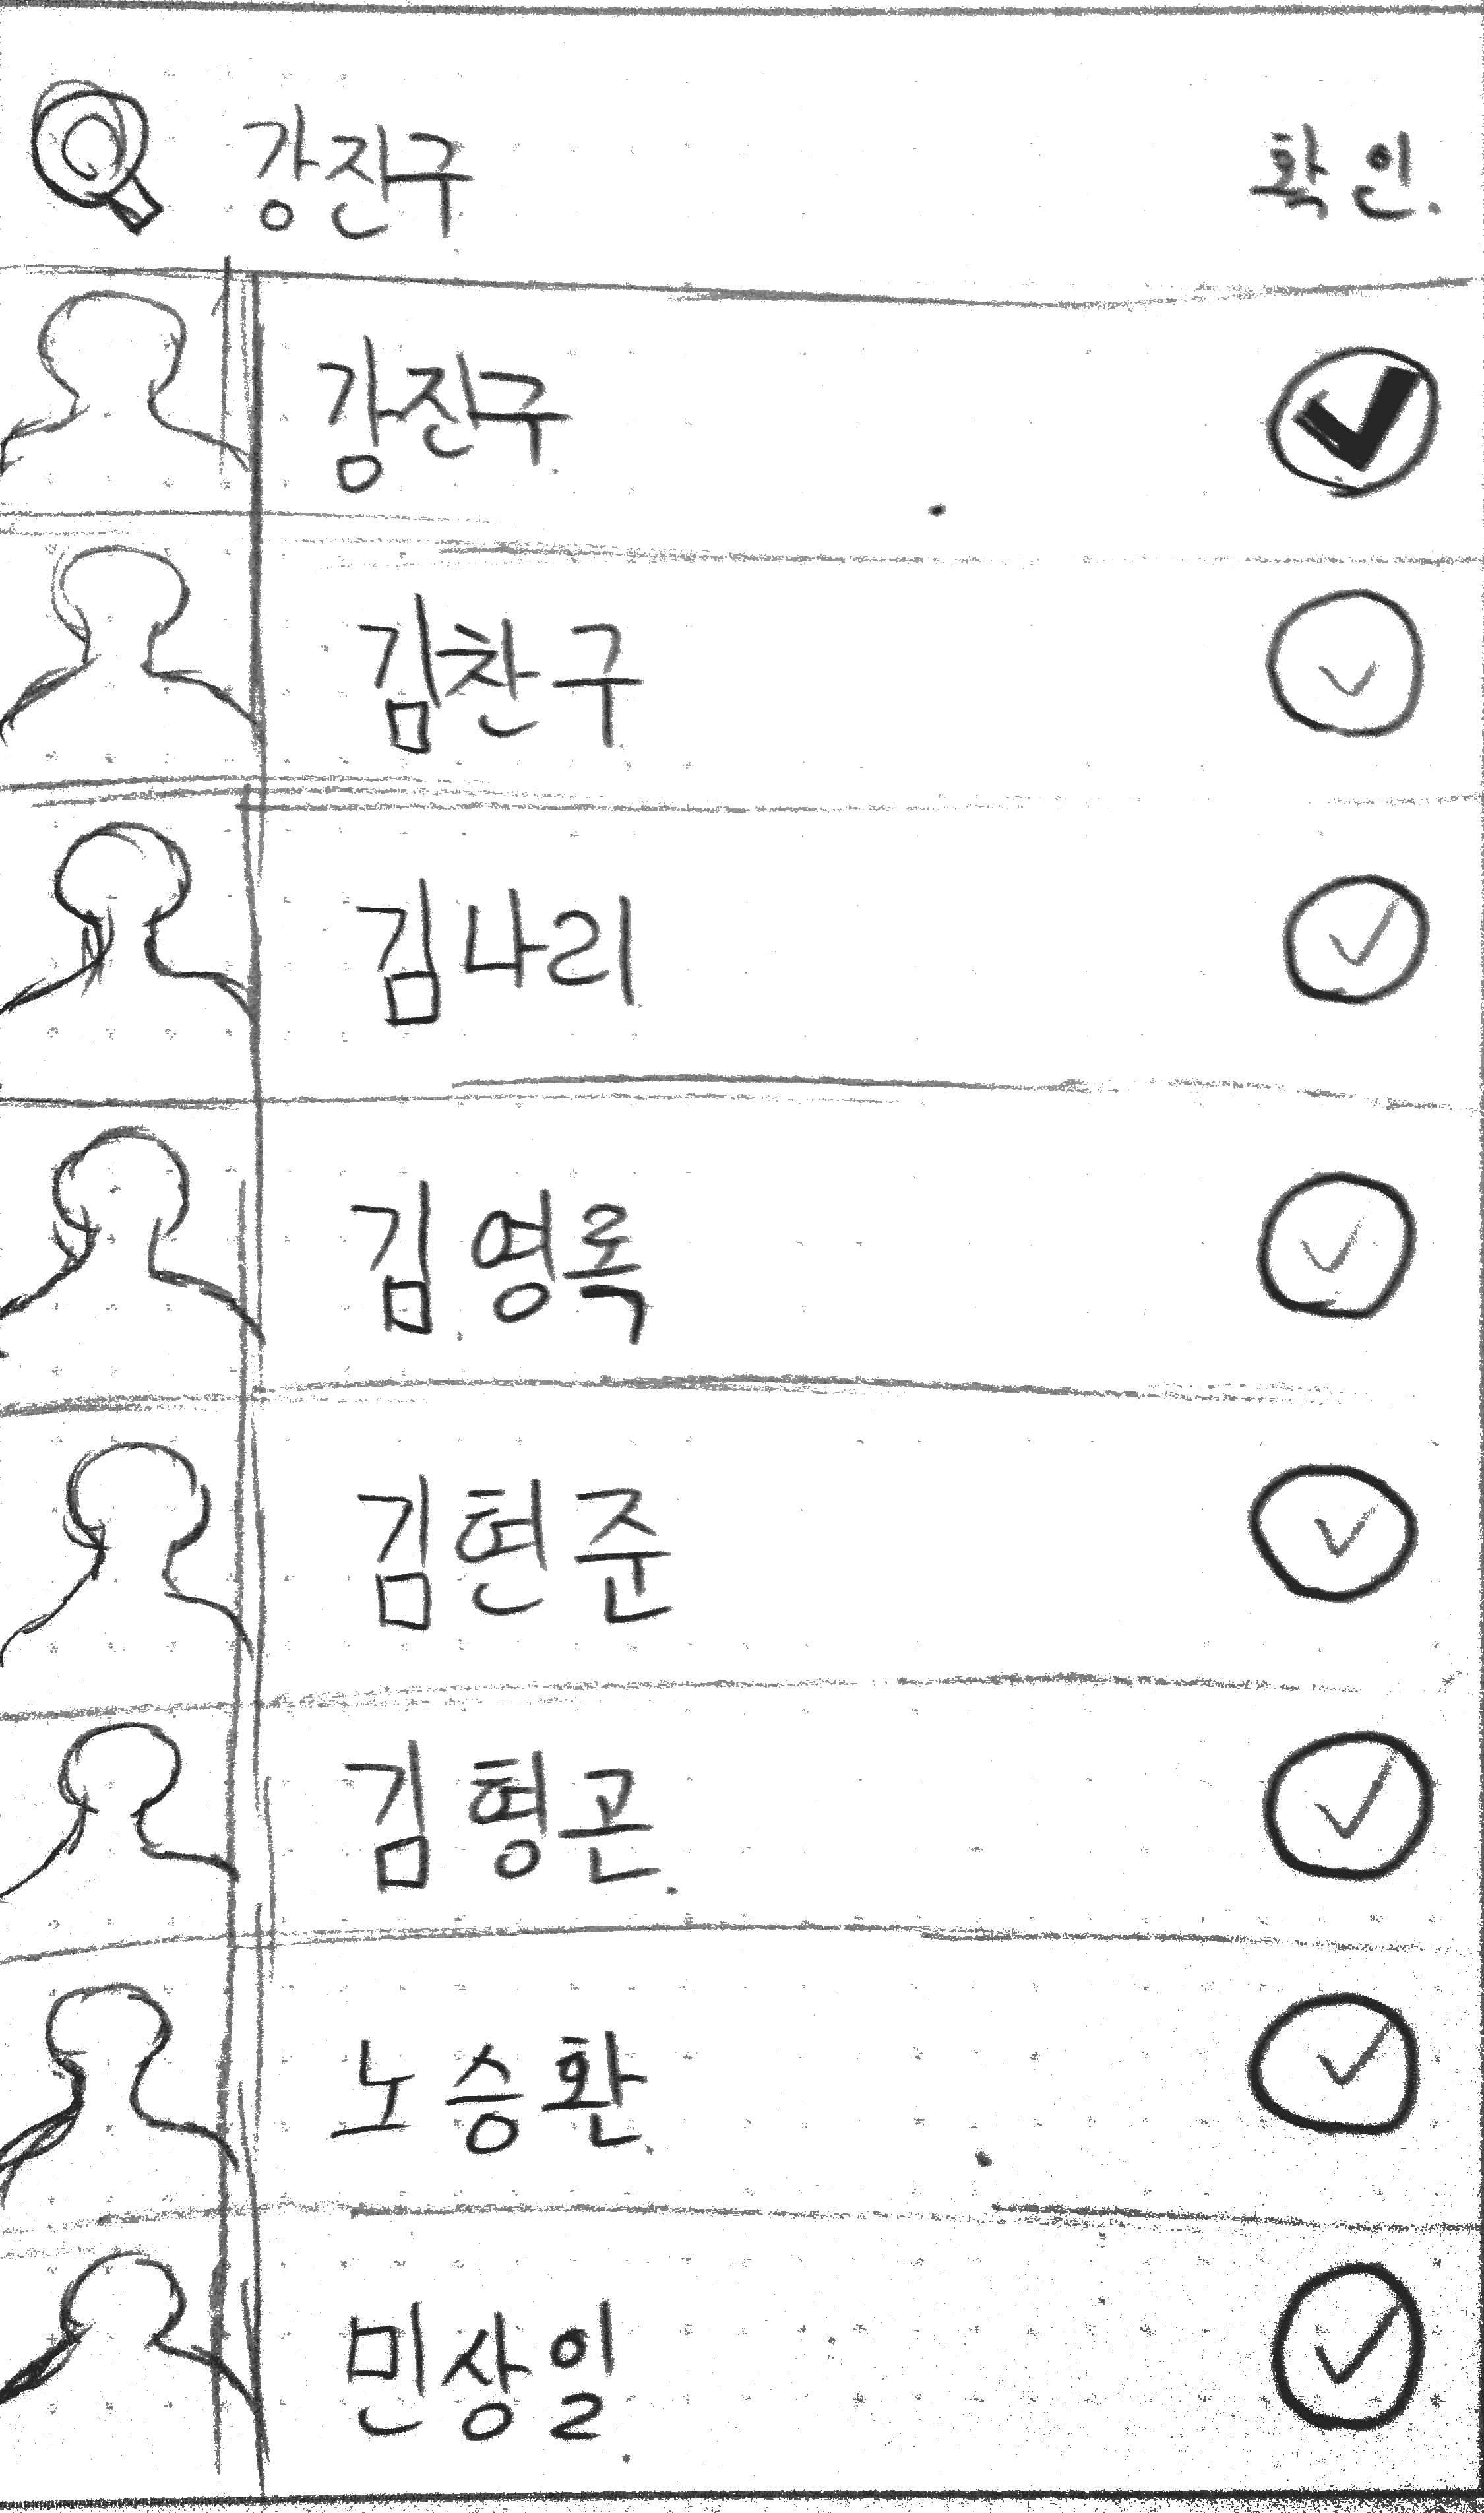 강진구 확인.
강진구
김찬구
김나리
김영록
김현준
김형곤
노승환
민상일